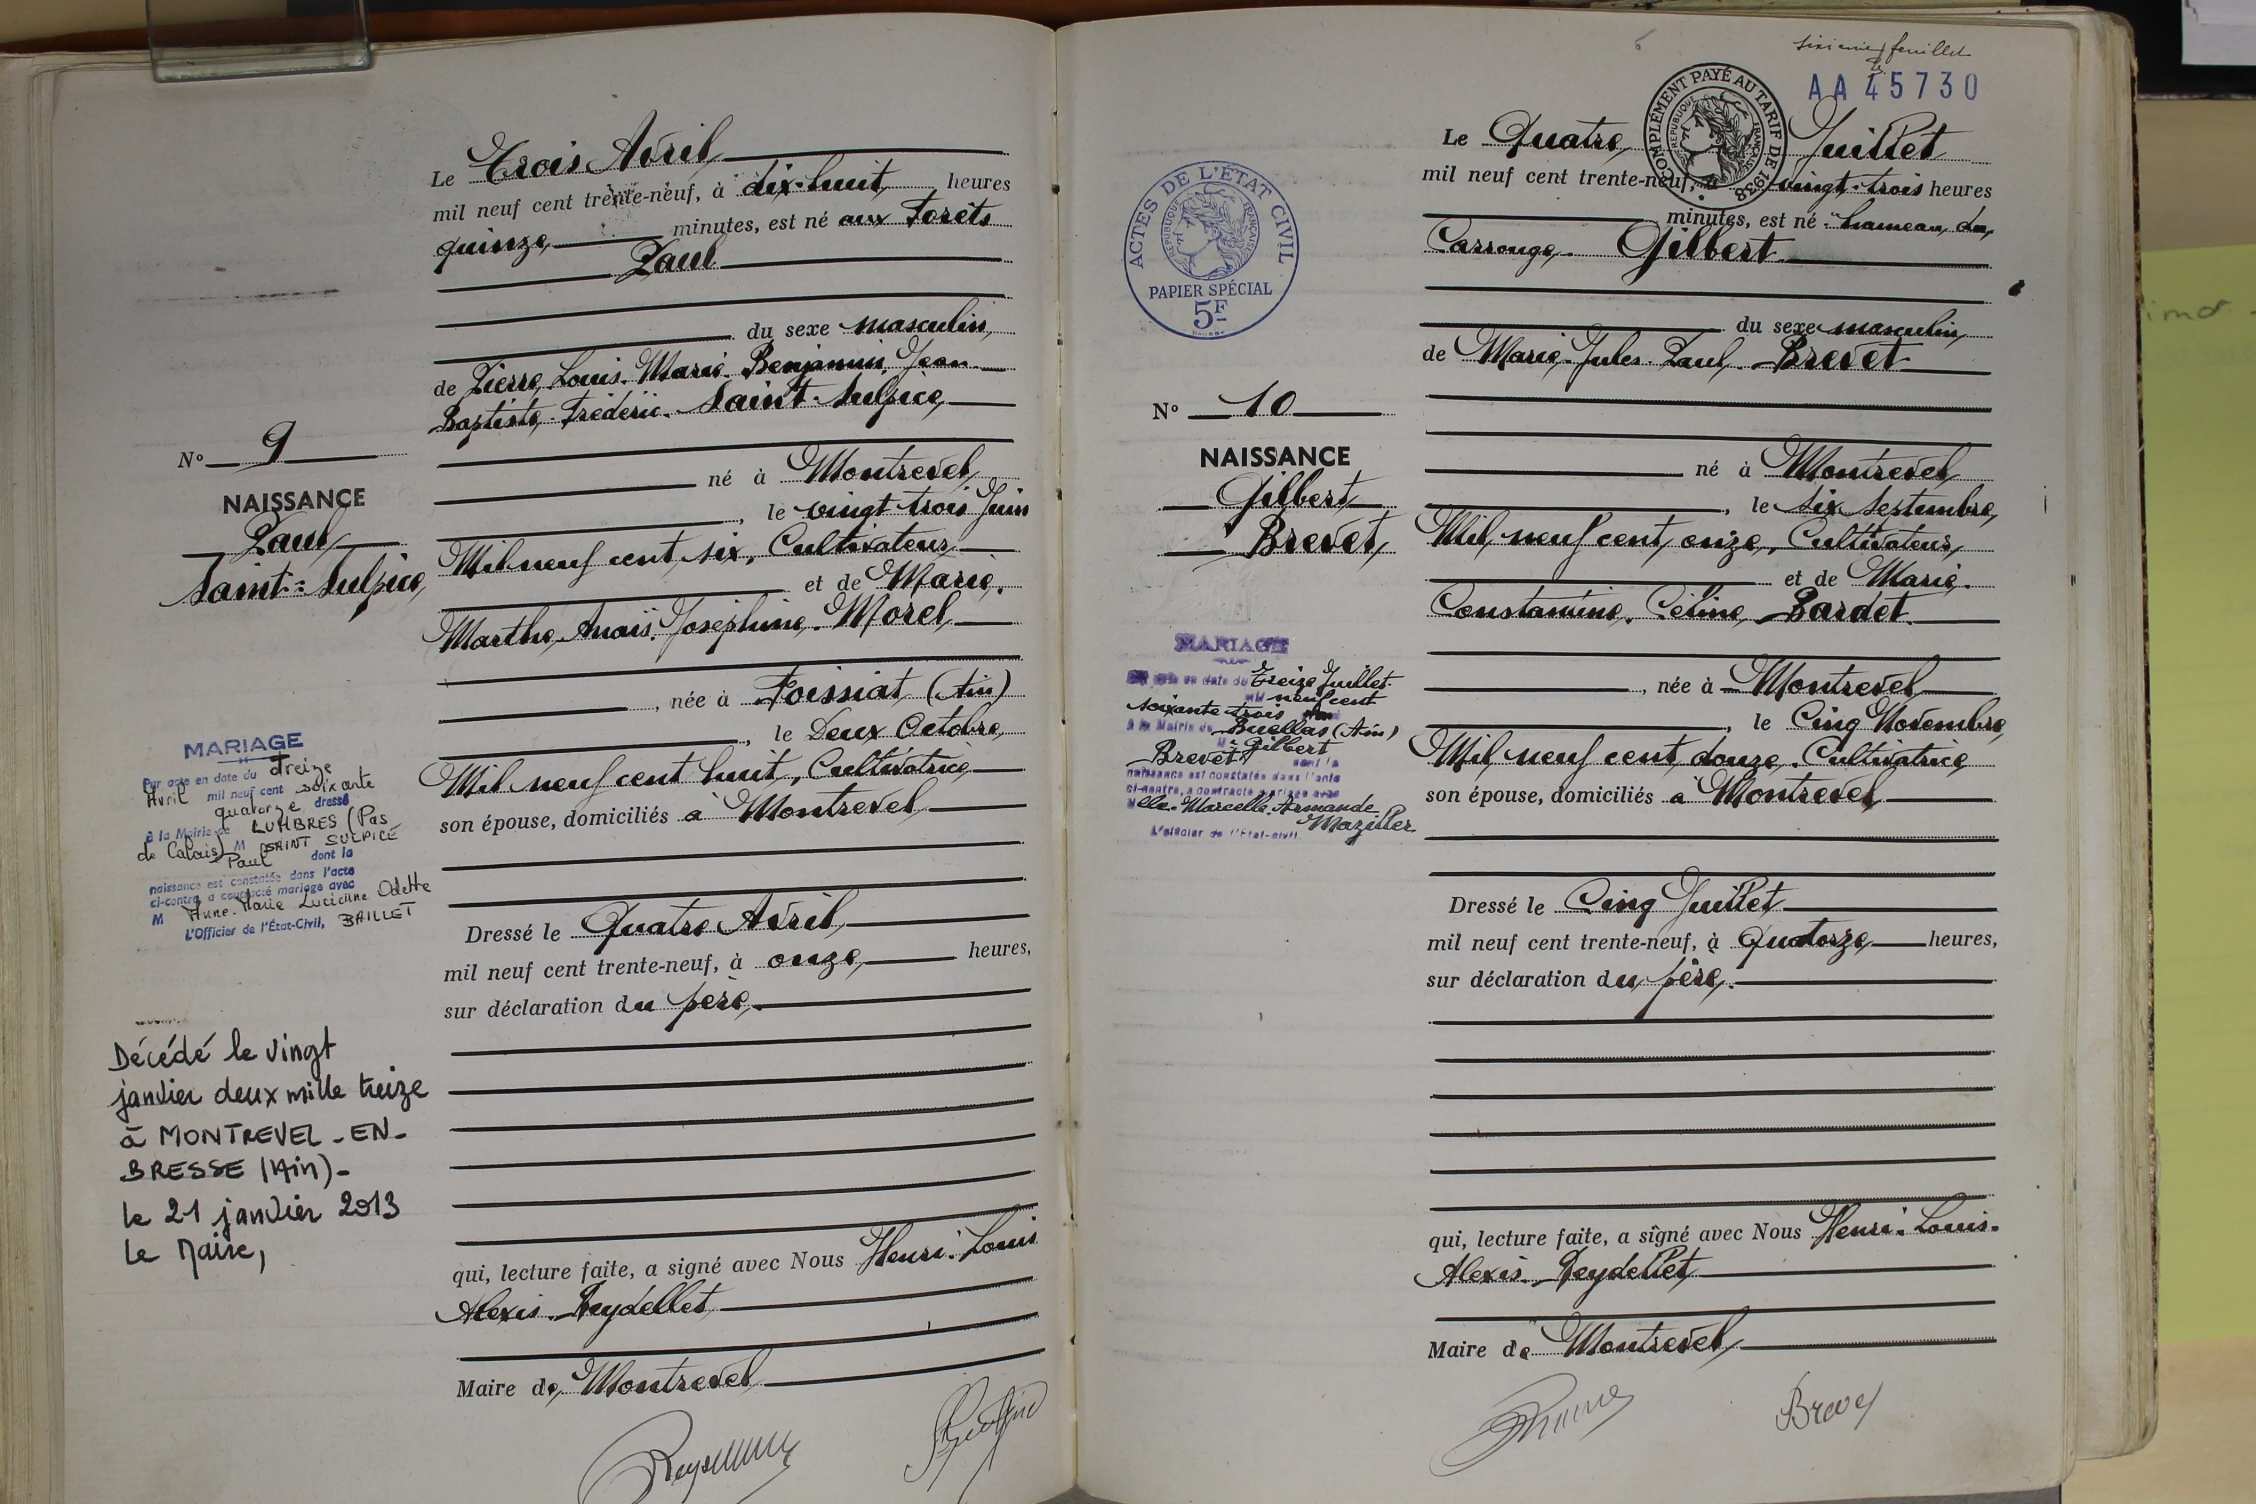 Le Trois Avril
mil neuf cent trente-neuf, à dix-huit heures
quinze minutes, est né aux Forêts
Paul
du sexe masculin
de Pierre, Louis, Marie, Benjamin, Jean
Baptiste, Frédéric, Saint-Sulpice,
né à Montrevel
, le vingt trois Juin
Mil neuf cent six, Cultivateur
et de Marie,
Marthe, Anaïs, Joséphine, Morel,
, née à Foissiat (Ain)
, le Deux Octobre
Mil neuf cent huit, Cultivatrice
son épouse, domiciliés à Montrevel
Dressé le Quatre Avril
mil neuf cent trente-neuf, à onze heures,
sur déclaration du père.
qui, lecture faite, a signé avec Nous Henri-Louis
Alexis Peydellet
Maire de Montrevel
N° 9
NAISSANCE
Paul
Saint-Sulpice,
MARIAGE
Par acte en date du treize
Avril mil neuf cent soixante
quatorze dressé
à la Mairie de LUMBRES (Pas
de Calais) M SAINT SULPICE
Paul dont la
naissance est constatée dans l'acte
ci-contre, a contracté mariage avec
M Anne-Marie Lucienne Odette
L'Officier de l'État-Civil, BAILLET
Décédé le vingt
janvier deux mille treize
à MONTREVEL-EN-
BRESSE (Ain)-
le 21 janvier 2013
le Maire,
sixième feuillet
AA 45730
COMPLÉMENT PAYÉ AU TARIF DE 1938
RÉPUBLIQUE FRANÇAISE
ACTES DE L'ÉTAT CIVIL
RÉPUBLIQUE FRANÇAISE
PAPIER SPÉCIAL
5F
Le Quatre Juillet
mil neuf cent trente-neuf, à vingt-trois heures
minutes, est né hameau du
Carrouge, Gilbert
du sexe masculin
de Marie-Jules-Paul Brevet
né à Montrevel
, le six Septembre,
Mil neuf cent onze, Cultivateur,
et de Marie,
Constantine, Céline, Bardet
, née à Montrevel
, le Cinq Novembre,
Mil neuf cent douze, Cultivatrice,
son épouse, domiciliés à Montrevel
Dressé le Cinq Juillet
mil neuf cent trente-neuf, à Quatorze heures,
sur déclaration du père.
qui, lecture faite, a signé avec Nous Henri-Louis-
Alexis Peydellet
Maire de Montrevel
Brevet
N° 10
NAISSANCE
Gilbert
Brevet,
MARIAGE
acte en date du Treize Juillet
mil neuf cent
soixante trois
à la Mairie de Buellas (Ain)
M. Gilbert
Brevet dont la
naissance est constatée dans l'acte
ci-contre, a contracté mariage avec
Melle Marcelle Armande
Mazillier
L'Officier de l'État-civil